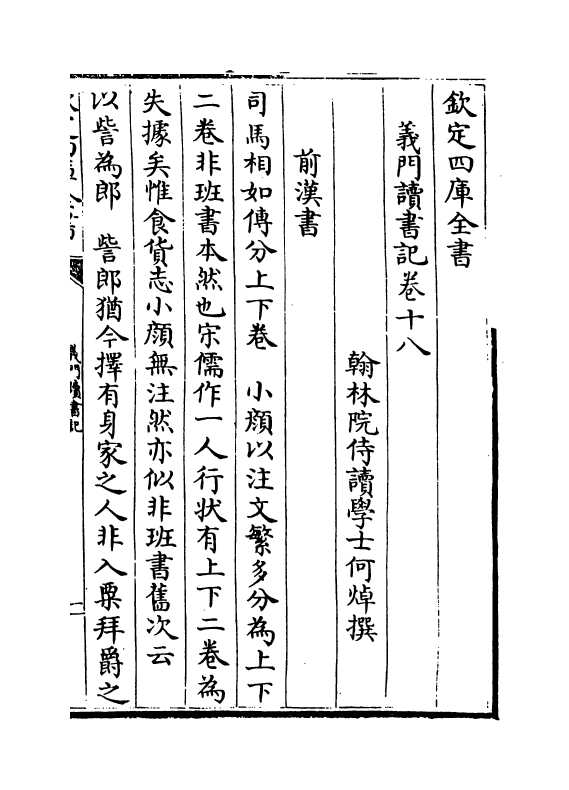 欽定四庫全書
義門讀書記卷十八
翰林院侍讀學士何焯撰
前漢書
司馬相如傳分上下卷　小顔以注文繁多分為上下
二卷非班書本然也宋儒作一人行狀有上下二卷為
失據矣惟食貨志小顔無注然亦似非班書舊次云
以訾為郎　訾郎猶今擇有身家之人非入粟拜爵之
義門讀書記
一